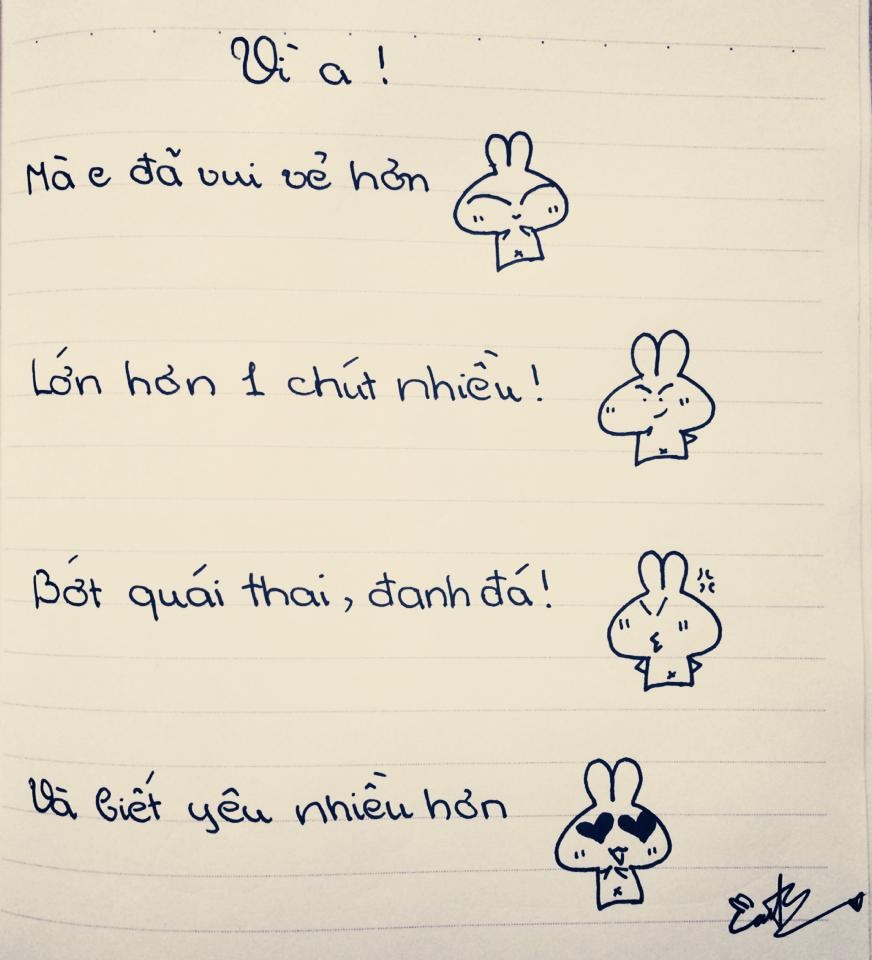 Vì a !
Mà e đã vui vẻ hơn
Lớn hơn 1 chút nhiều!
Bớt quái thai, đanh đá!
Và biết yêu nhiều hơn